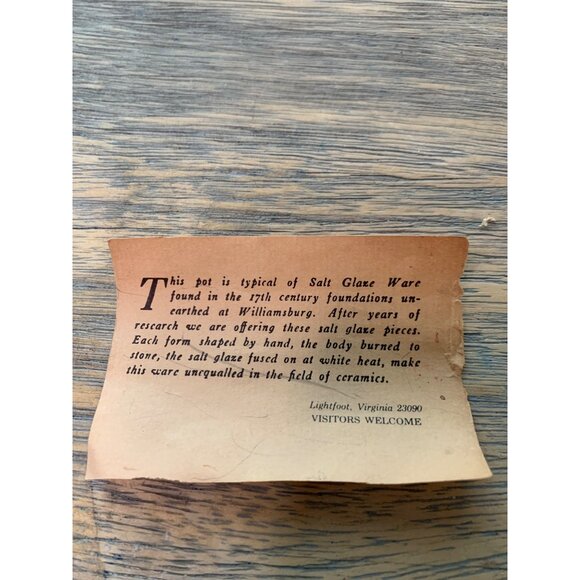 This pot is typical of Salt Glaze Ware
found in the 17th century foundations un-
earthed at Williamsburg. After years of
research we are offering these salt glaze pieces.
Each form shaped by hand, the body burned to
stone, the salt glaze fused on at white heat, make
this ware unequalled in the field of ceramics.
Lightfoot, Virginia 23090
VISITORS WELCOME